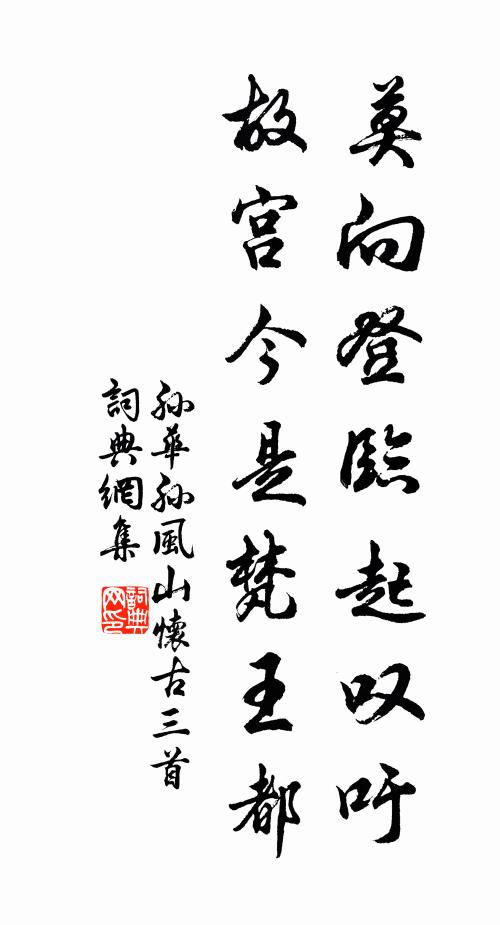 莫向登臨起叹吁
故宫今是梵王都
孙華孙風山懷古三首
詞典網集
詞典网印